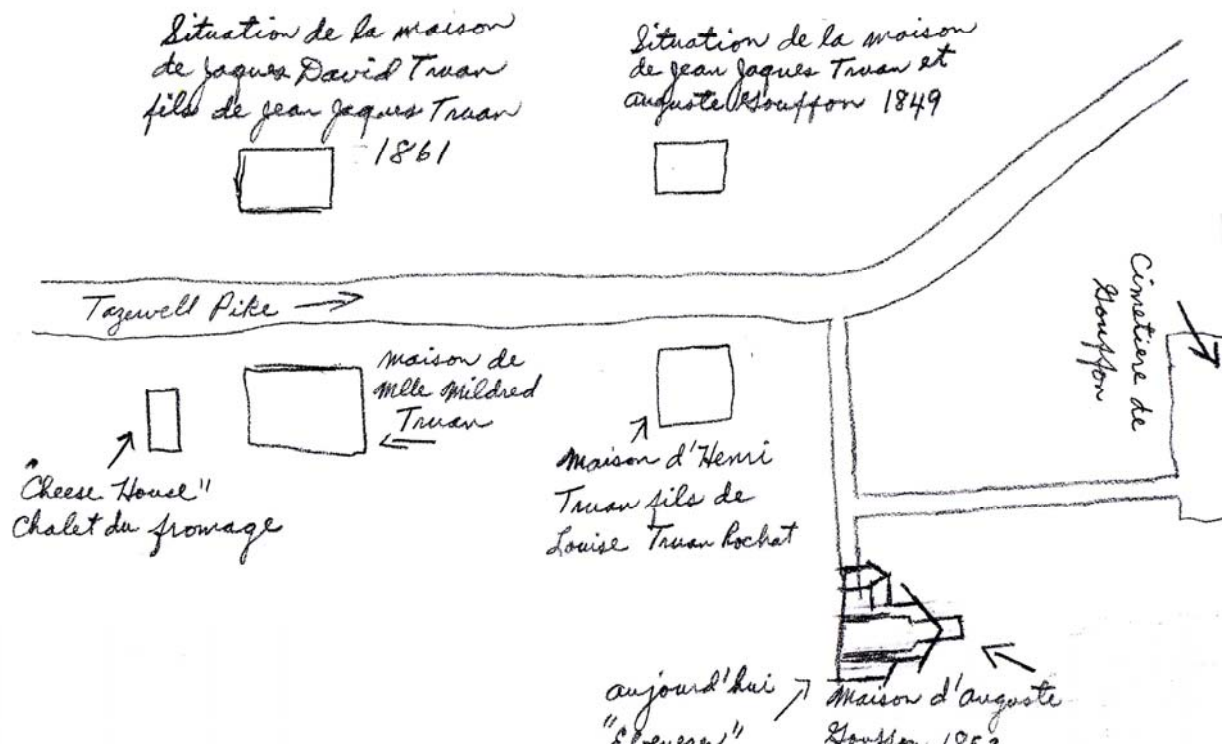 Situation de la maison
de Jaques David Truan
fils de Jean Jaques Truan
1861
Situation de la maison
de Jean Jaques Truan et
Auguste Gouffon 1849
Tazewell Pike
Cimetiere de
Gouffon
maison de
Mlle Mildred
Truan
"Cheese House"
Chalet du fromage
Maison d'Henri
Truan fils de
Louise Truan Rochat
aujourd'hui
"Ebenezer"
Maison d'Auguste
Gouffon